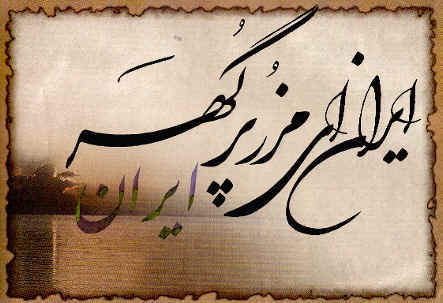 ایران ای مرز پُر گُهَر
ایران